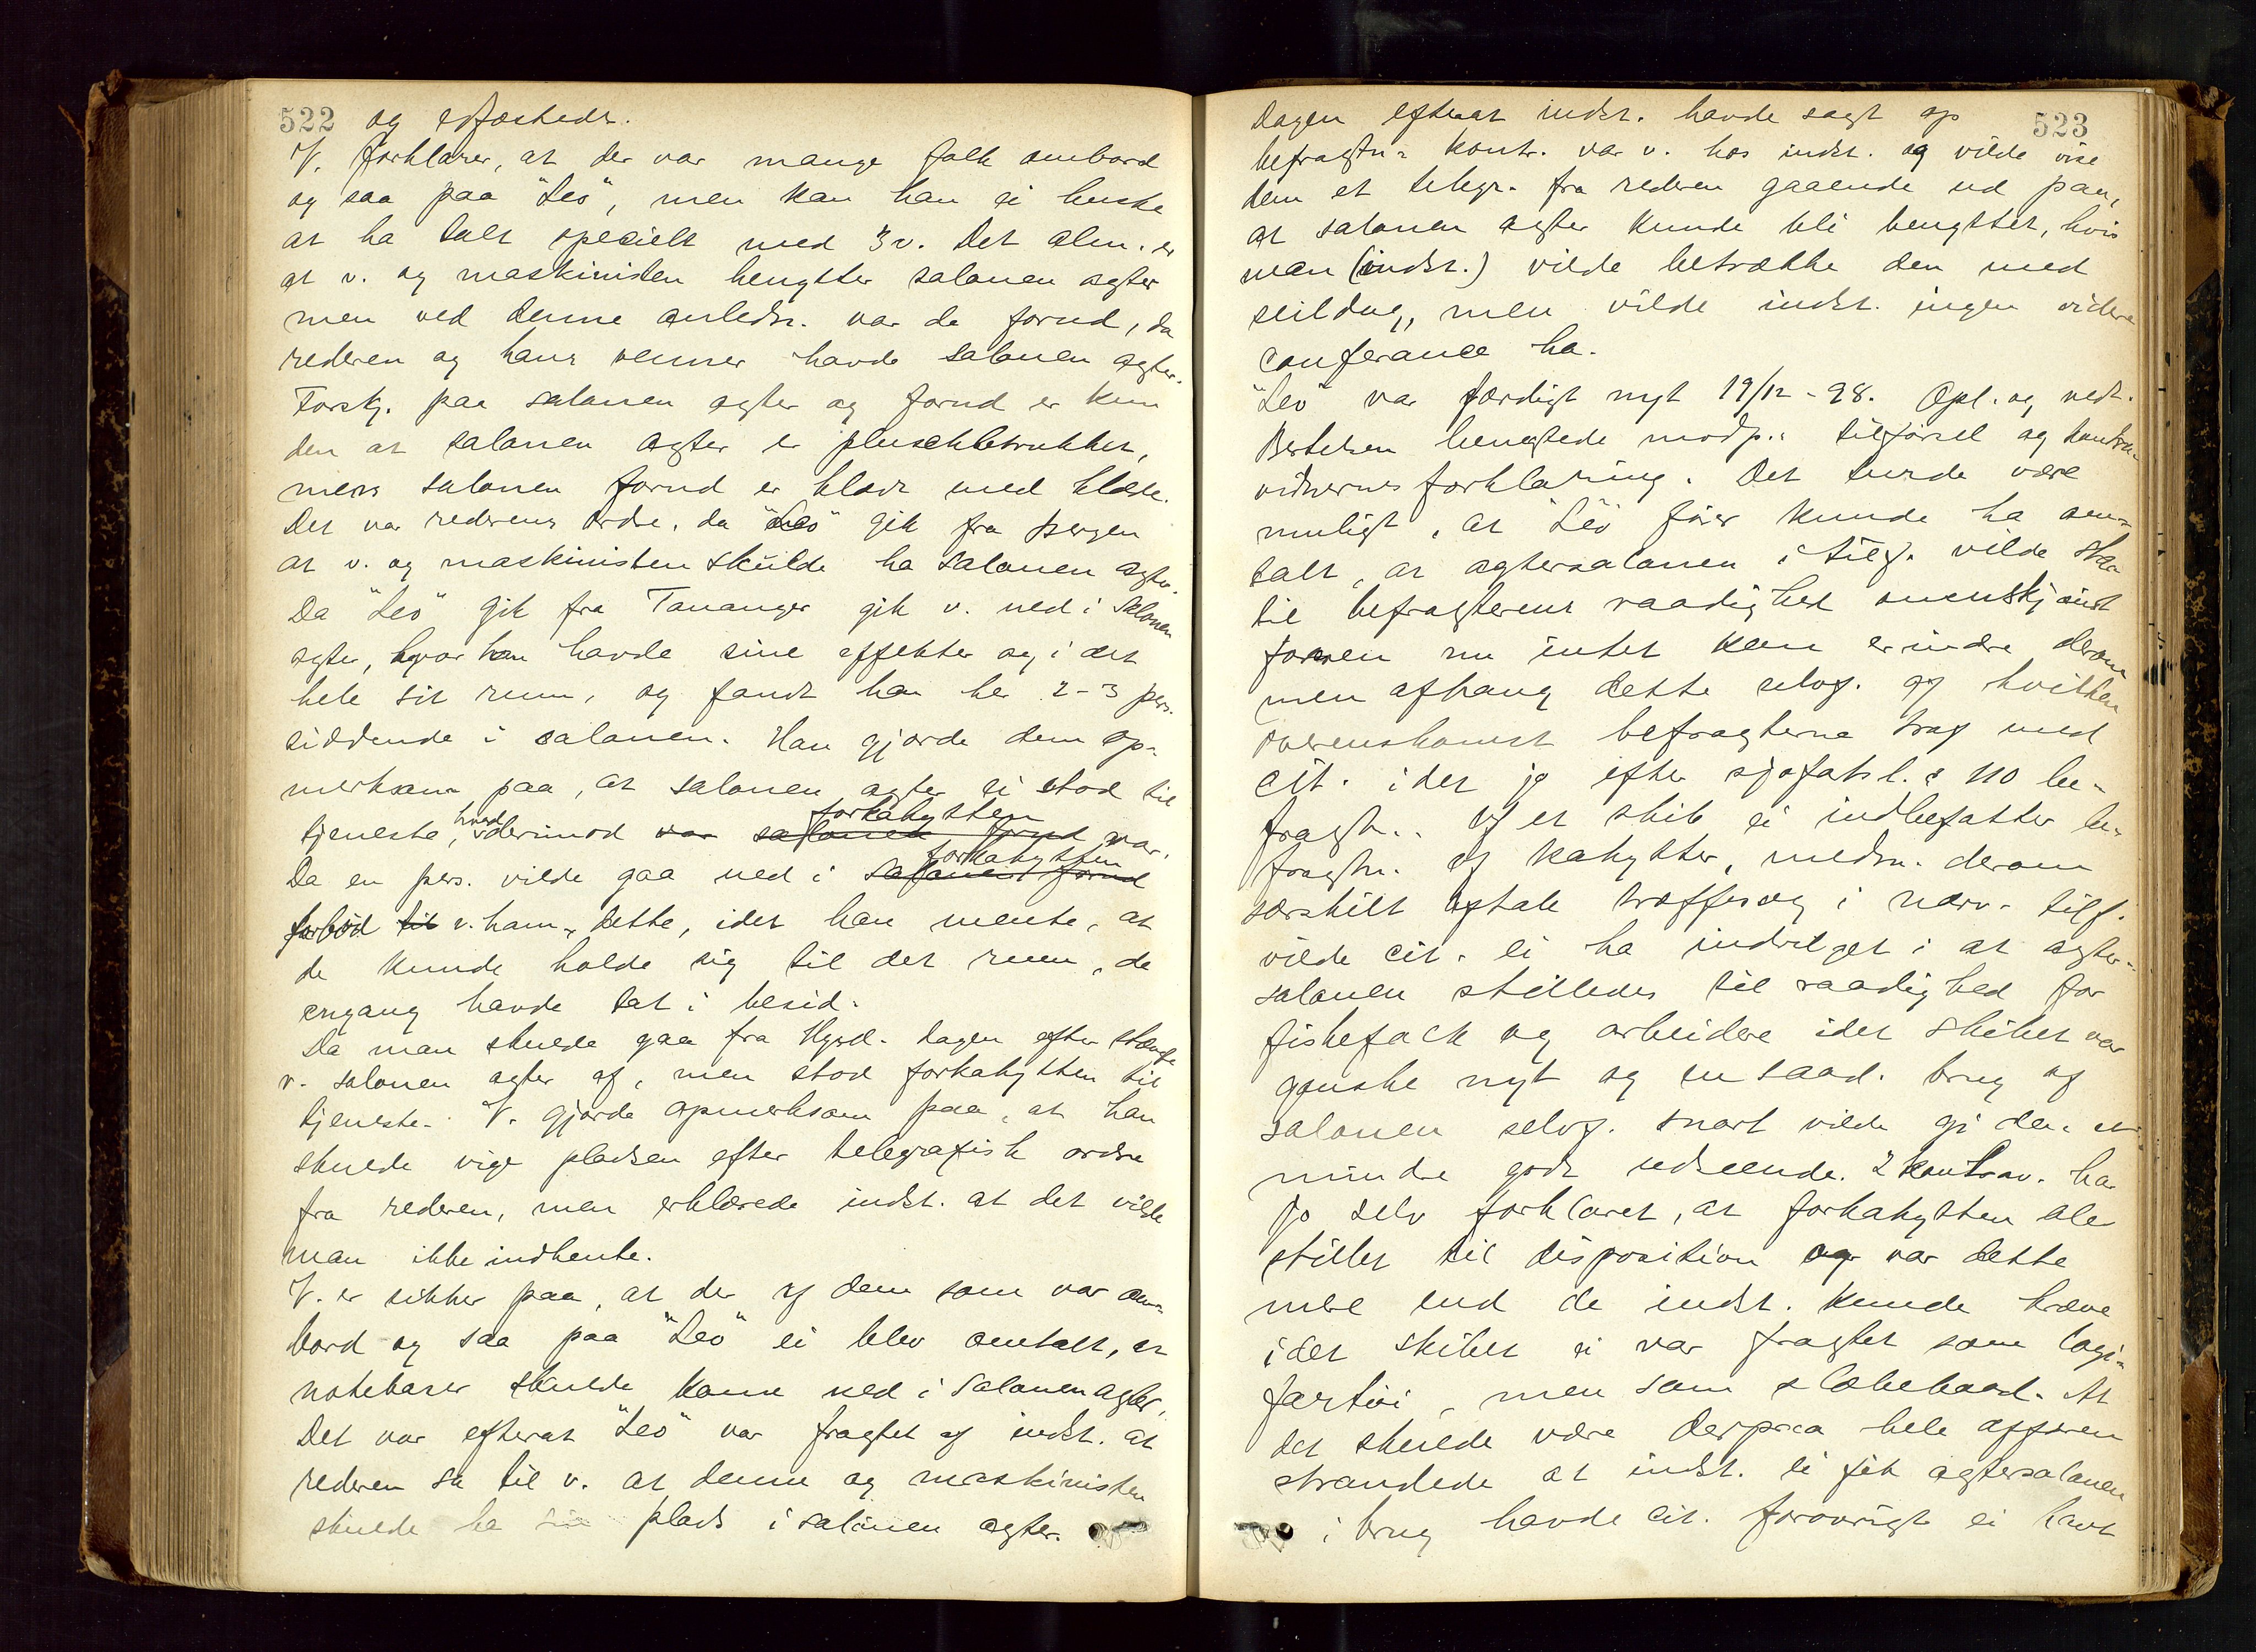 522 og edfæstedes.
V. forklarer, at der var mange folk ombord
og saa paa "Leo", men kan han ei huske
at ha talt specielt med 3 v. Det alm. er
at v. og maskinisten benytter salonen agter
men ved denne anledn. var de forud, da
rederen og hans venner havde salonen agter.
Forskj. paa salonen agter og forud er kun
den at salonen agter er pluschbetrukket,
mens salonen forud er klædt med klæde.
Det var rederens ordre, da "Leo" gik fra Bergen
at v. og maskinisten skulde ha salonen agter.
Da "Leo" gik fra Tananger gik v. ned i salonen
agter, hvor han havde sine effekter og i det
hele sit rum, og fandt han her 2-3 pers.
siddende i salonen. Han gjorde dem op-
merksam paa, at salonen agter ei stod til
tjeneste, hvad derimod var salonen forud forkahytten var.
Da en pers. vilde gaa ned i salonen forud forkahytten
forbød til v. ham dette, idet han mente, at
de kunde holde sig til det rum, de
engang havde tat i besid.
Da man skulde gaa fra Hgsd. dagen efter stængte
v. salonen agter af, men stod forkahytten til
tjeneste. V. gjorde opmerksom paa, at han
skulde vige pladsen efter telegrafisk ordre
fra rederen, men erklærede indst. at det vilde
man ikke indhente.
V. er sikker paa, at der af dem som var om-
bord og saa paa "Leo" ei blev omtalt, at
notebaser skulde komme ned i salonen agter.
Det var efterat "Leo" var fragtet af indst. at
rederen sa til v. at denne og maskinisten
skulde ha sin plads i salonen agter.
Dagen efterat indst. havde sagt op 523
befragtn.s kontr. var v. hos indst. og vilde vise
dem et telegr. fra rederen gaaende ud paa,
at salonen agter kunde bli benyttet, hvis
man (indst.) vilde betrække den med
seildug, men vilde indst. ingen videre
conferance ha.
"Leo" var færdigt nyt 19/12-98. Opl. og vedt.
Bertelsen benegtede modp.s tilførsel og kontra-
vidnernes forklaring. Det turde være
muligt, at "Leo"s fører kunde ha om-
talt, at agtersalonen i tilf. vilde staa
til befragterens raadighed omenskjønt
føreren nu intet kan erindre derom
men afhang dette selvf. af hvilken
overenskomst befragterne traf med
cit. idet jo efter sjøfatsl. § 110 be-
fragtn. af et skib ei indbefatter be-
fragtn. af kahytter, medm. derom
særskilt aftale træffes og i nærv. tilf.
vilde cit. ei ha indvilget i at agter-
salonen stilledes til raadighed for
fiskefolk og arbeidere idet skibet var
ganske nyt og en saad. brug af
salonen selvf. snart vilde gi den et
mindre godt udseende. 2 kontrav. har
jo selv forklaret, at forkahytten ble
stillet til disposition og var dette
mere end de indst. kunde kræve
idet skibet ei var fragtet som logi-
fartøi, men som slæbebaad. At
det skulde være derpaa hele affæren
strandede at indst. ei fik agtersalonen
i brug havde cit. forøvrigt ei havt